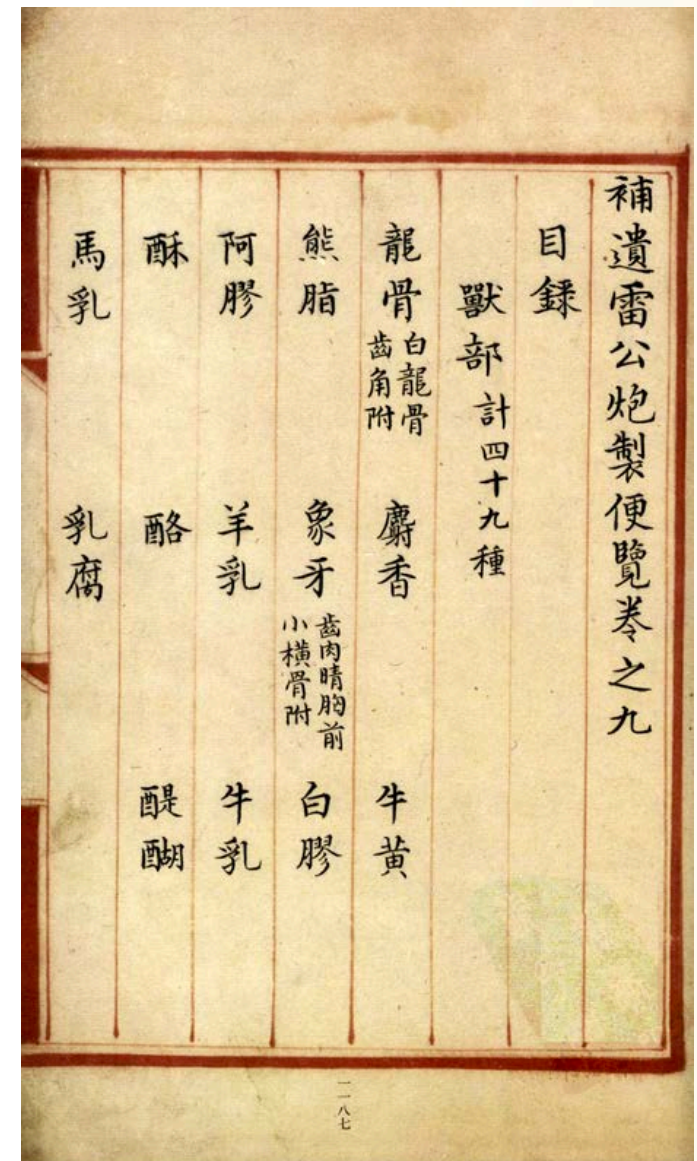 補遺雷公炮製便覽卷之九
目錄
獸部 計四十九種
龍骨 白龍骨齒角附 麝香 牛黃
熊脂 象牙 齒肉睛胸前小橫骨附 白膠
阿膠 羊乳 牛乳
酥 酪 醍醐
馬乳 乳腐
一一八七